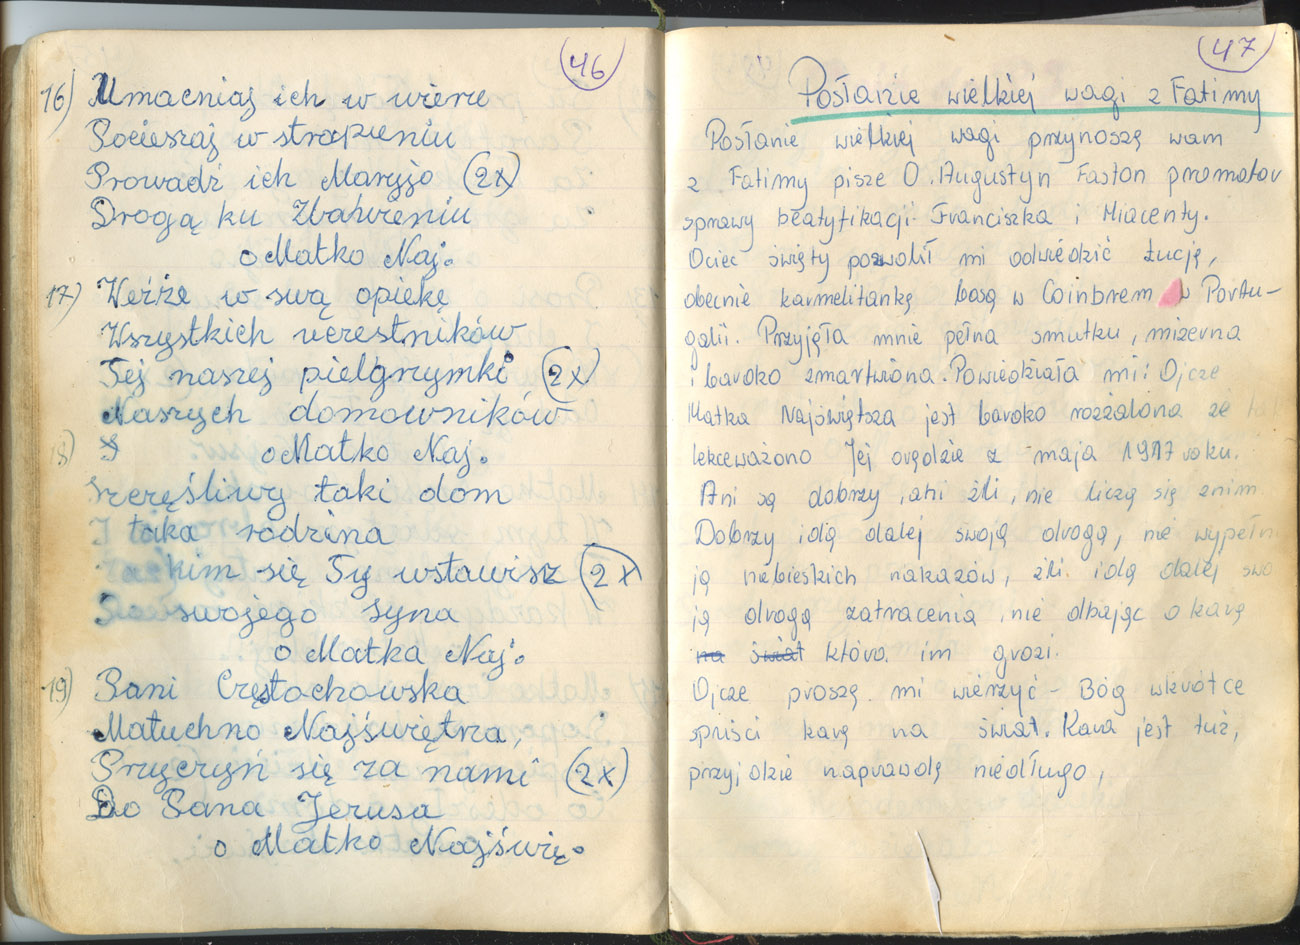 46
16) Umacniaj ich w wierze
Pocieszaj w strapieniu
Prowadź ich Maryjo (2x)
Drogą ku Zbawieniu
o Matko Naj.
17) Weźże w swą opiekę
Wszystkich uczestników
Tej naszej pielgrzymki (2x)
Naszych domowników
18) o Matko Naj.
Szczęśliwy taki dom
I taka rodzina
nim się Ty wstawisz (2x)
swojego syna
o Matka Naj.
19) Pani Częstochowska
Matuchno Najświętrza,
Przyczyń się za nami (2x)
Do Pana Jezusa
o Matko Najświę.
47
Posłanie wielkiej wagi z Fatimy
Posłanie wielkiej wagi przynoszę wam
z Fatimy pisze O. Augustyn Faston promotor
sprawy beatyfikacji Franciszka i Hiacenty.
Ociec święty pozwolił mi odwiedzić Łucję,
obecnie karmelitankę bosą w Coinbrem w Portu-
galii. Przyjęła mnie pełna smutku, mizerna
i bardzo zmartwiona. Powiedziała mi: Ojcze
Matka Najświętsza jest bardzo rozżalona ze tak
lekceważono Jej orędzie z maja 1917 roku.
Ani są dobrzy, ani źli, nie liczą się z nim
Dobrzy idą dalej swoją drogą, nie wypełni
ją niebieskich nakazów, źli idą dalej swo
ją drogą zatracenia, nie dbając o karę
na świat która im grozi.
Ojcze proszę mi wierzyć - Bóg wkrótce
spuści karę na świat. Kara jest tuż,
przyjdzie naprawdę niedługo,